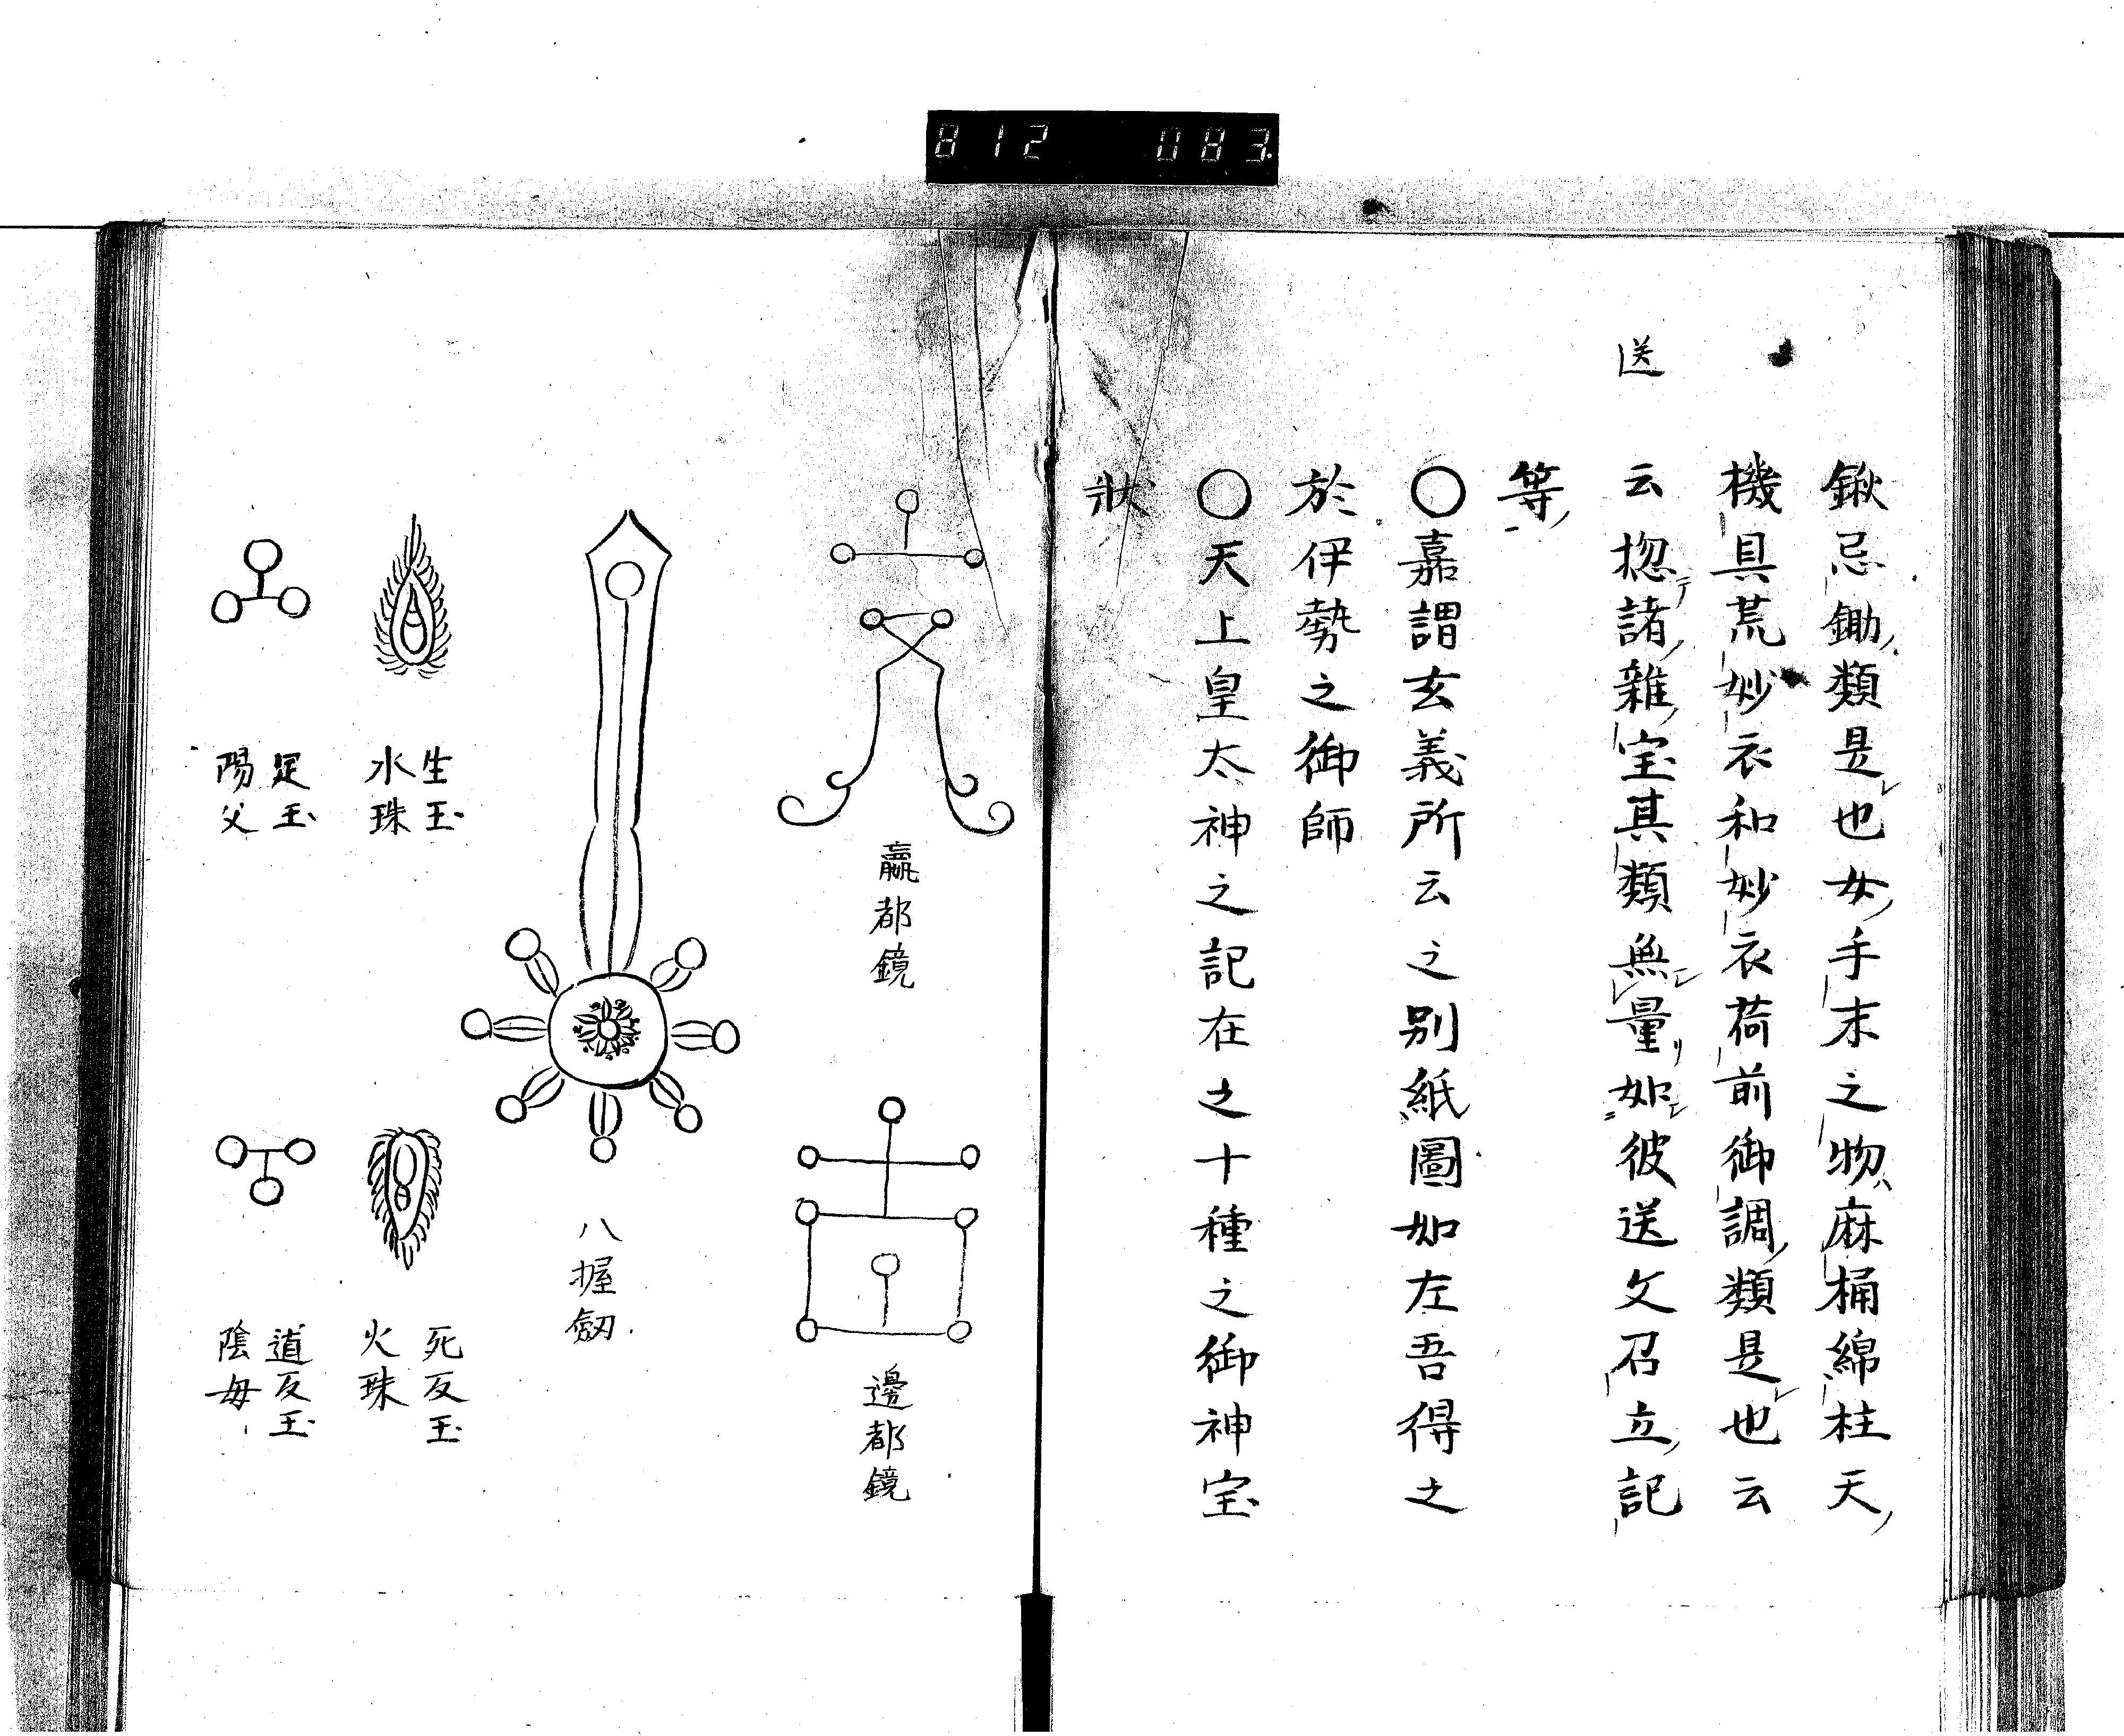 812 083.
鍬忌鋤類是也女手末之物麻桶綿柱天
機具荒妙衣和妙衣荷前御調類是也云
送
云惣諸雜宝其類無量如彼送文召立記
等
〇嘉謂玄義所云之別紙圖如左吾得之
於伊勢之御師
〇天上皇太神之記在之十種之御神宝
狀
瀛都鏡
邊都鏡
八握劔
生玉
水珠
死反玉
火珠
足玉
陽父
道反玉
陰母